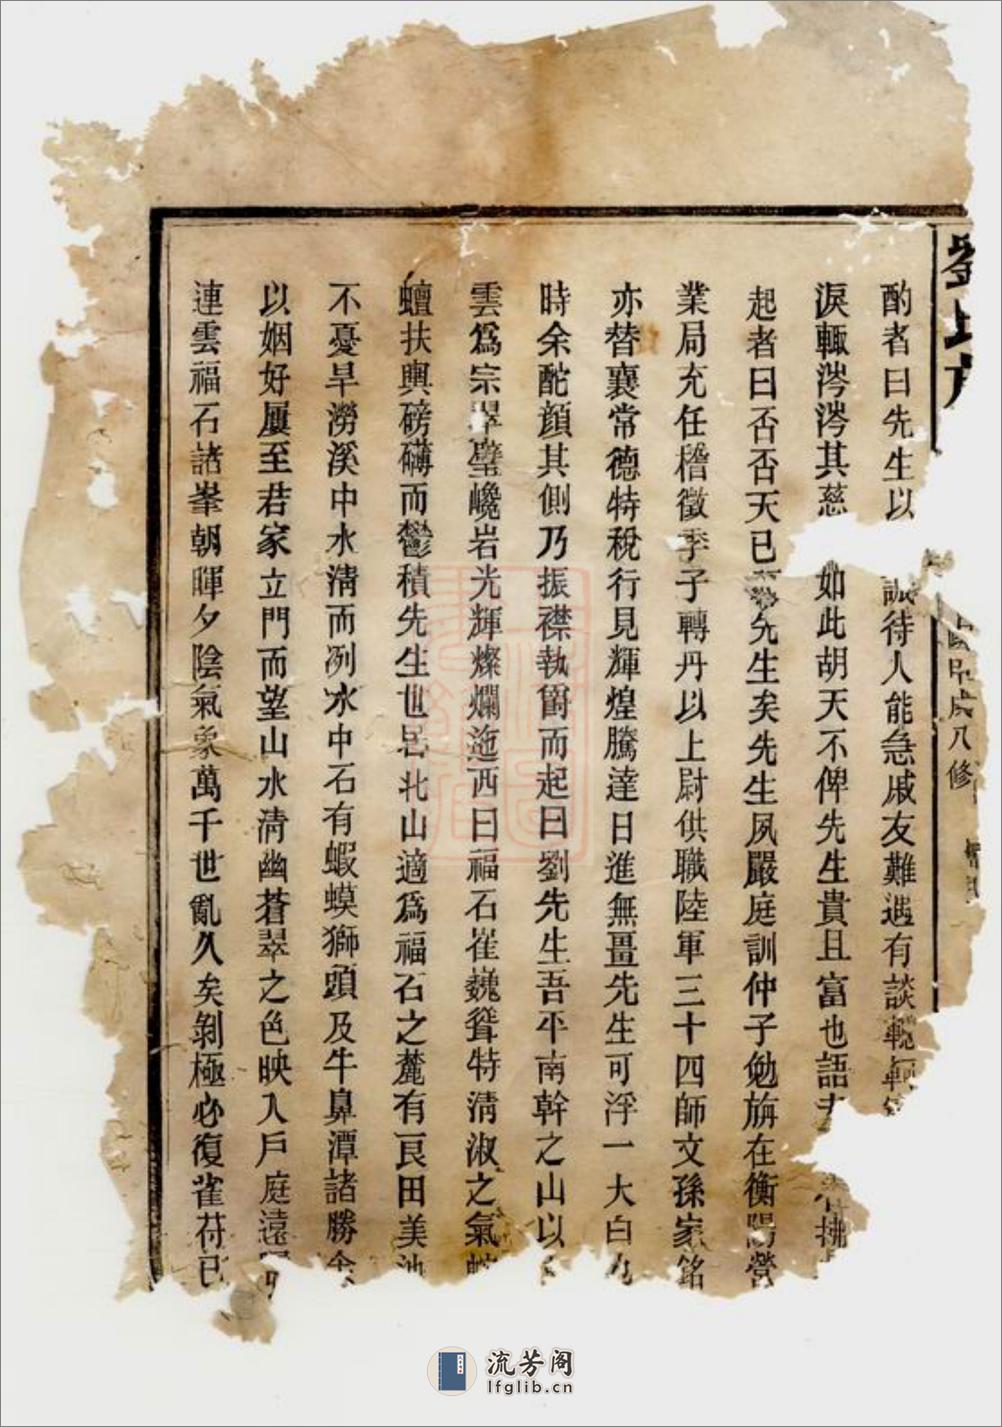 劉氏
八修
酌者曰先生以誠待人能急戚友難遇有談
淚輒涔涔其慈如此胡天不俾先生貴且富也語
起者曰否否天已先生矣先生夙嚴庭訓仲子勉旃在衡陽營
業局充任稽徵季子轉丹以上尉供職陸軍三十四師文孫家銘
亦替襄常德特稅行見輝煌騰達日進無疆先生可浮一大白
時余酡顏其側乃振襟執爵而起曰劉先生吾平南幹之山以
雲為宗翠壁巉岩光輝燦爛迤西曰福石崔巍聳特淸淑之氣
蟺扶輿磅礴而鬱積先生世邑北山適為福石之麓有良田美池
不憂旱澇溪中水淸而冽水中石有蝦蟆獅頭及牛鼻潭諸勝余
以姻好屢至君家立門而望山水淸幽蒼翠之色映入戶庭遠
連雲福石諸峯朝暉夕陰氣象萬千世亂久矣剝極必復雀苻已
流芳阁
lfglib.cn